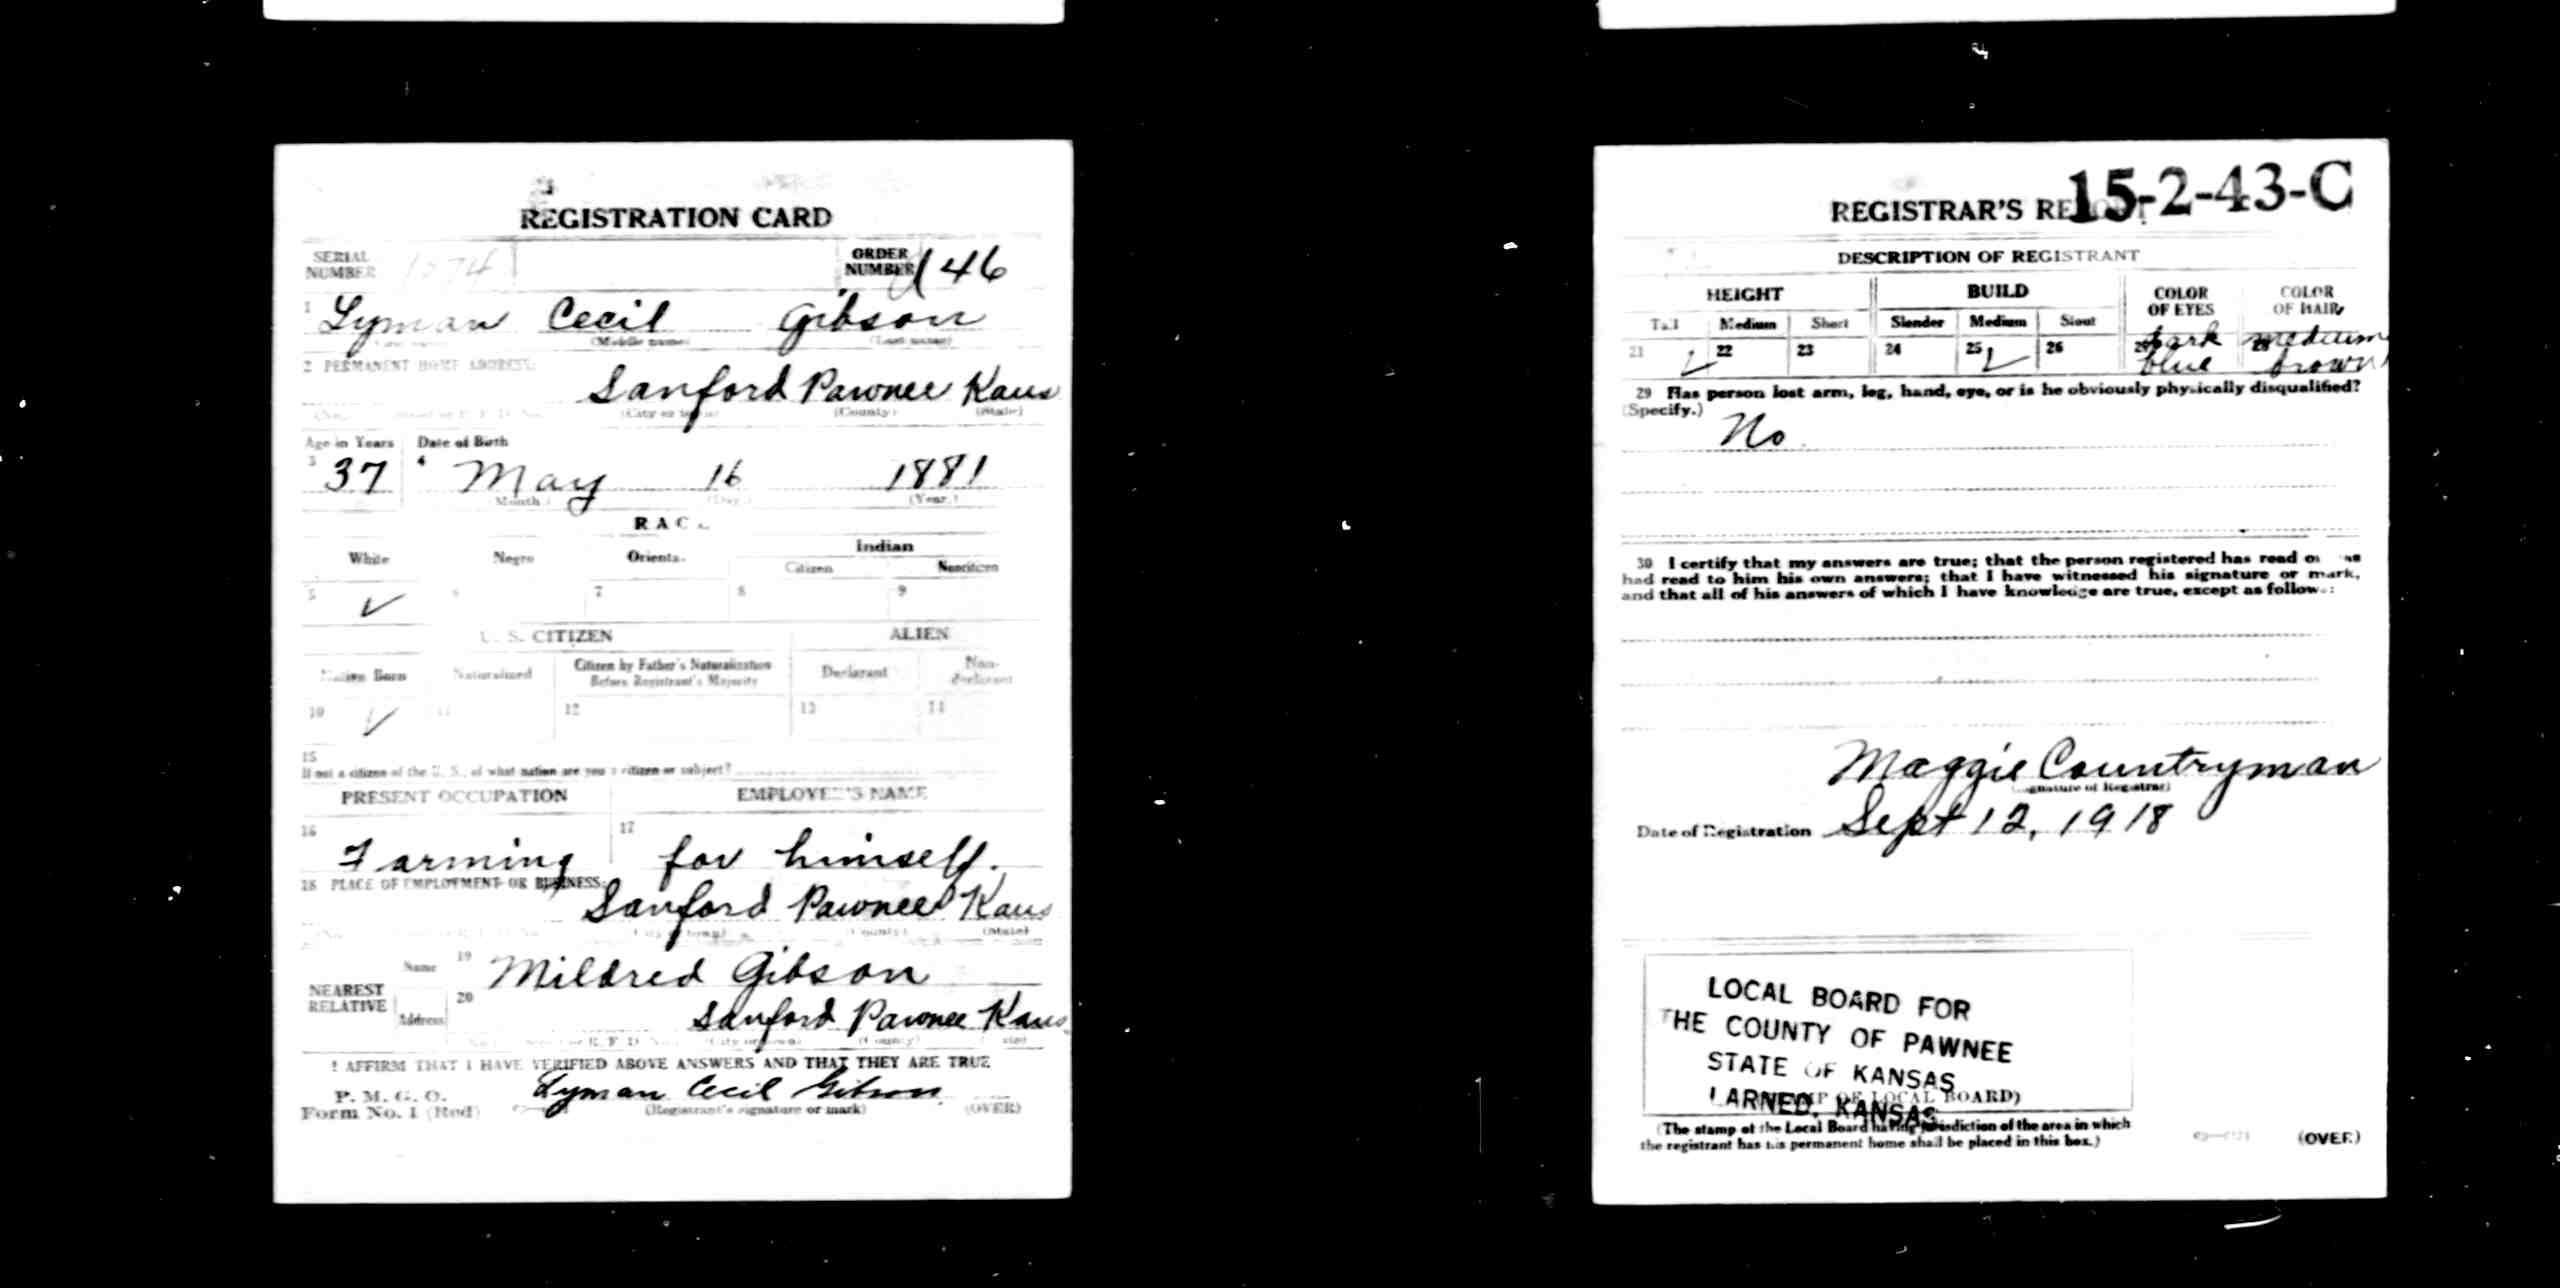 REGISTRATION CARD
SERIAL NUMBER 1574 ORDER NUMBER 146
1 Lyman Cecil Gibson
(Middle name) (Last name)
2 PERMANENT HOME ADDRESS:
Sanford Pawnee Kans
(City or town) (County) (State)
Age in Years Date of Birth
3 37 4 May 16 1881
(Month.) (Day.) (Year.)
RAC
White Negro Orienta. Indian
Citizen Noncitizen
5 ✓ 6 7 8 9
U. S. CITIZEN ALIEN
Native Born Naturalized Citizen by Father's Naturalization Before Registrant's Majority Declarant Non-declarant
10 ✓ 11 12 13 14
15
If not a citizen of the U. S., of what nation are you a citizen or subject?
PRESENT OCCUPATION EMPLOYER'S NAME
16 Farming 17 for himself.
18 PLACE OF EMPLOYMENT OR BUSINESS:
Sanford Pawnee Kans
(City or town) (County) (State)
NEAREST RELATIVE Name 19 Mildred Gibson
Address 20 Sanford Pawnee Kans
(City or town) (County) (State)
I AFFIRM THAT I HAVE VERIFIED ABOVE ANSWERS AND THAT THEY ARE TRUE
P. M. G. O.
Form No. 1 (Red) Lyman Cecil Gibson
(Registrant's signature or mark) (OVER)
REGISTRAR'S REPORT 15-2-43-C
DESCRIPTION OF REGISTRANT
HEIGHT BUILD COLOR OF EYES COLOR OF HAIR
Tall Medium Short Slender Medium Stout
21 ✓ 22 23 24 25 ✓ 26 27 dark blue 28 medium brown
29 Has person lost arm, leg, hand, eye, or is he obviously physically disqualified?
(Specify.) No
30 I certify that my answers are true; that the person registered has read or has
had read to him his own answers; that I have witnessed his signature or mark,
and that all of his answers of which I have knowledge are true, except as follows:
Maggie Countryman
(Signature of Registrar)
Date of Registration Sept 12, 1918
LOCAL BOARD FOR
THE COUNTY OF PAWNEE
STATE OF KANSAS
LARNED, KANSAS
(STAMP OF LOCAL BOARD)
(The stamp of the Local Board having jurisdiction of the area in which
the registrant has his permanent home shall be placed in this box.)
(OVER)